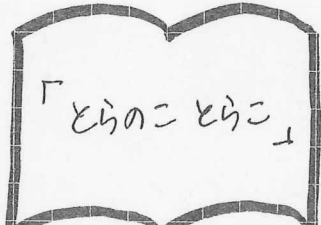 「とらのこ とらこ」